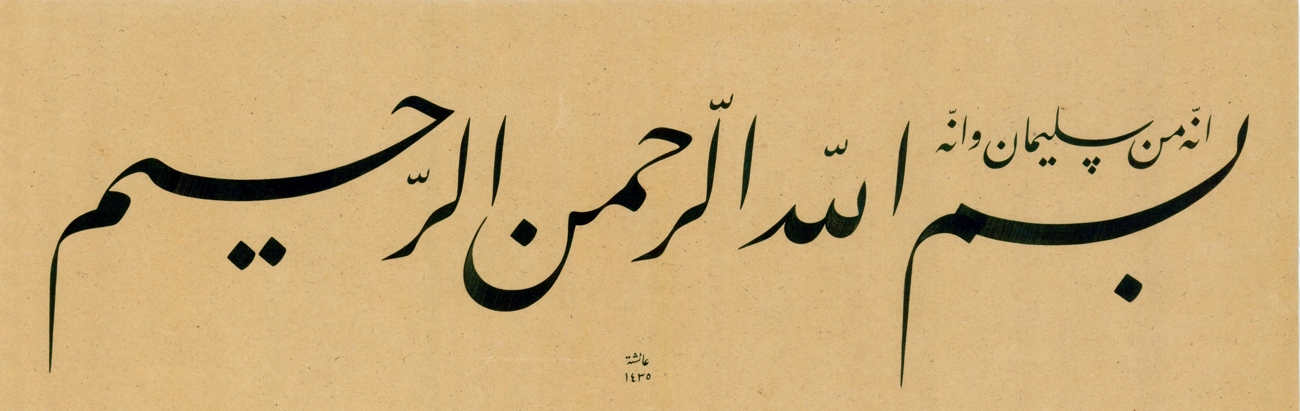 انّه من سليمان وانّه
بسم الله الرّحمن الرّحيم
عائشة
١٤٣٥